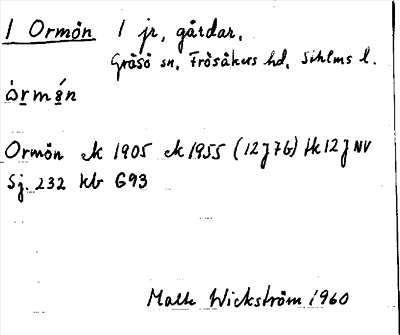 1 Ormön 1 jr, gårdar,
Gräsö sn, Frösåkers hd, Sthlms l.
òrmǿn
Ormön ek 1905 ek 1955 (12J7b) Hk 12J NV
Sj. 232 kb G93
Matts Wickström 1960